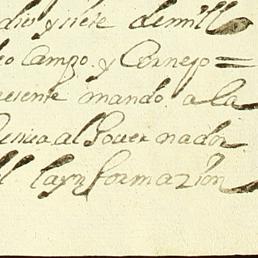 dies y siete de mill
eo Campo y Cornejo =
resente mando a la
al Gouernador
la ynformazion